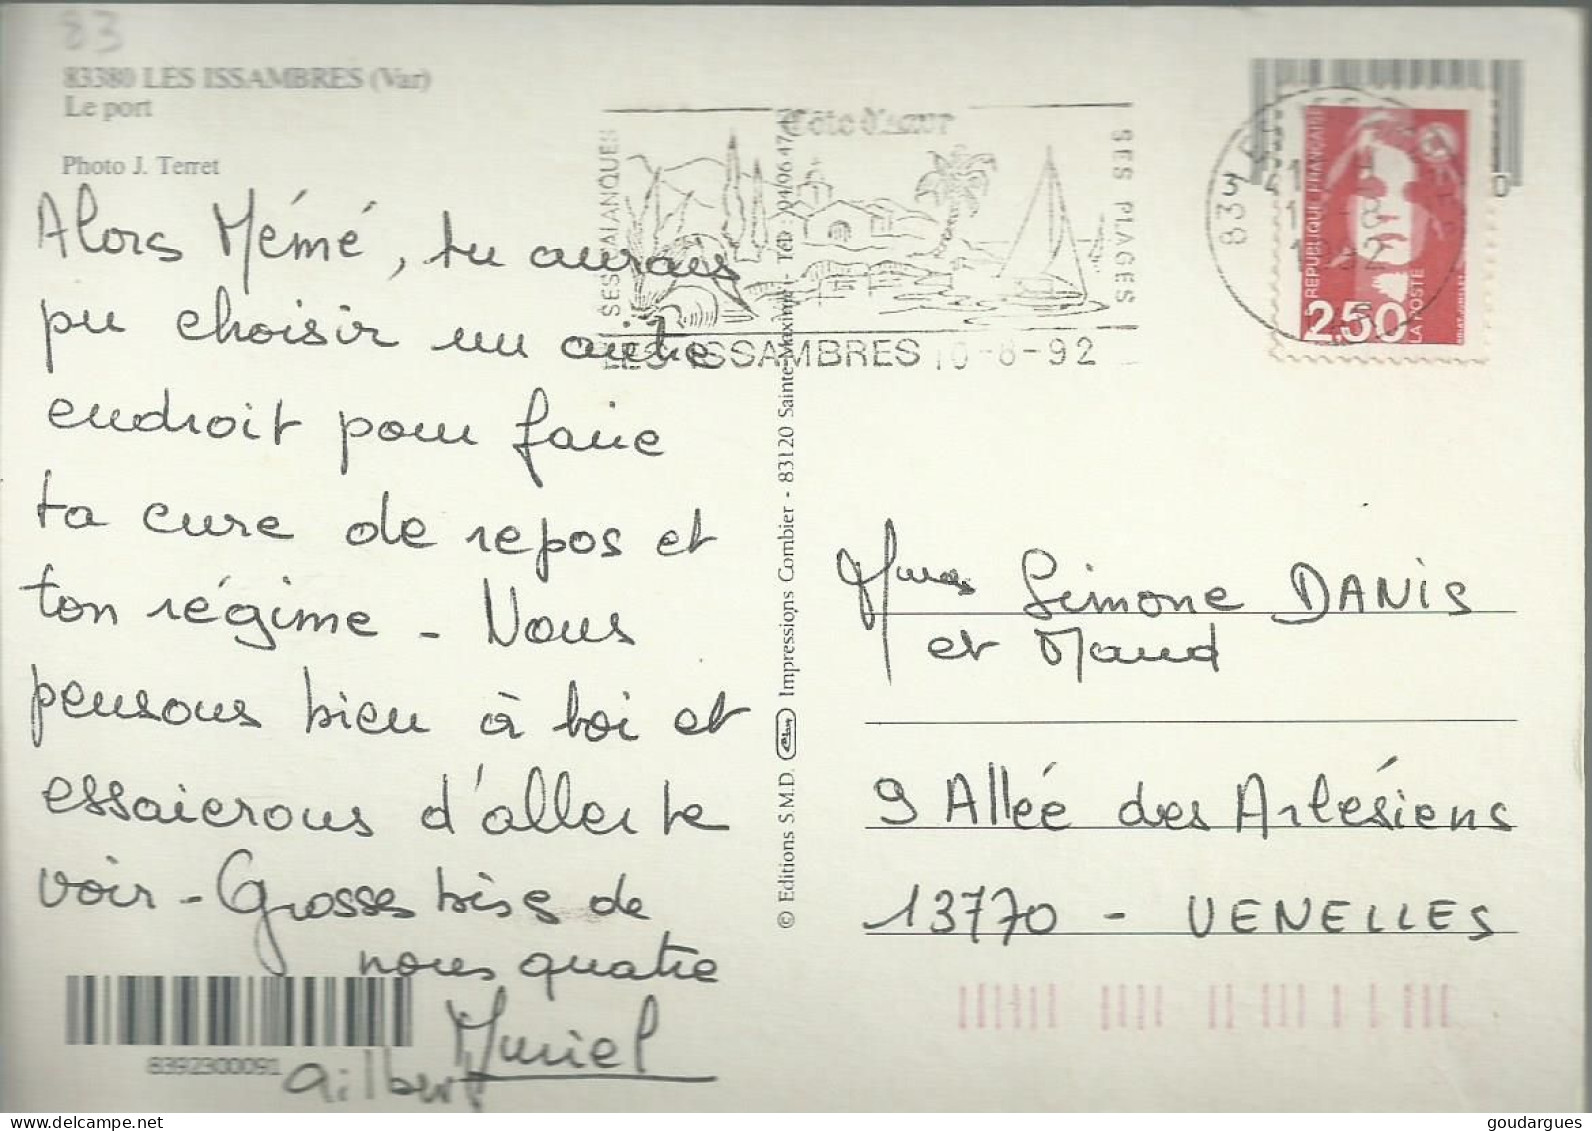 83
83380 LES ISSAMBRES (Var)
Le port
Photo J. Terret
Alors Mémé, tu aurais
pu choisir un autre
endroit pour faire
ta cure de repos et
ton régime - Nous
pensons bien à toi et
essaierons d'aller te
voir - Grosses bises de
nous quatre
Muriel
Gilbert
8392300091
Côte d'Azur
SES CALANQUES
SES PLAGES
LES ISSAMBRES 10-8-92
© Editions S.M.D. Impressions Combier - 83120 Sainte-Maxime - Tél.
REPUBLIQUE FRANÇAISE
2,50
LA POSTE
Mmes Simone DANIS
et Maud
9 Allée des Arlésiens
13770 - VENELLES
goudargues